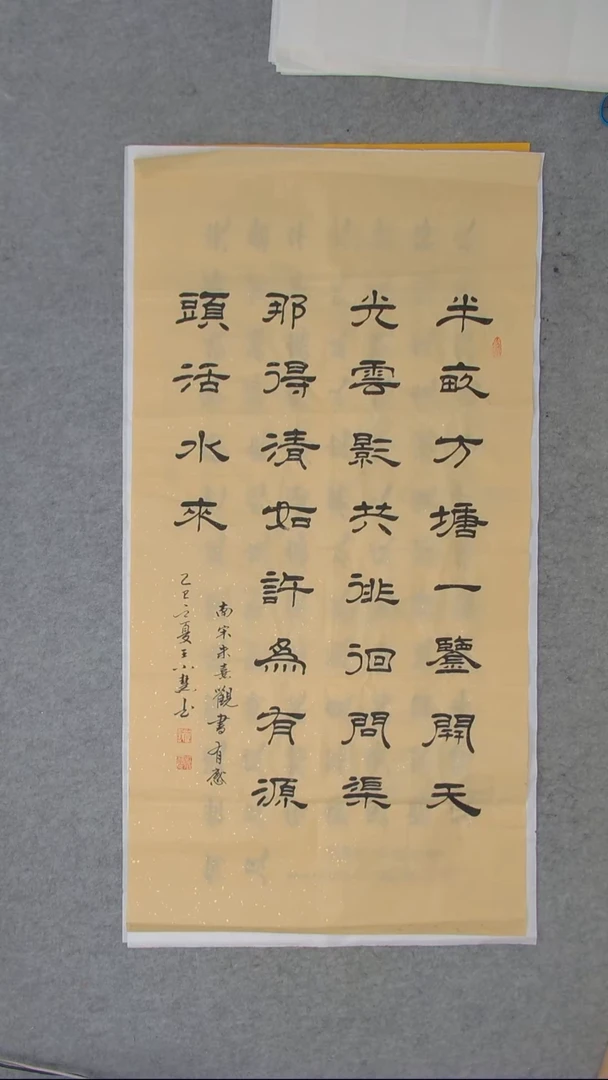 半畝方塘一鑒開天
光雲影共徘徊問渠
那得清如許為有源
頭活水來
南宋朱熹觀書有感
乙巳立夏王小慧书